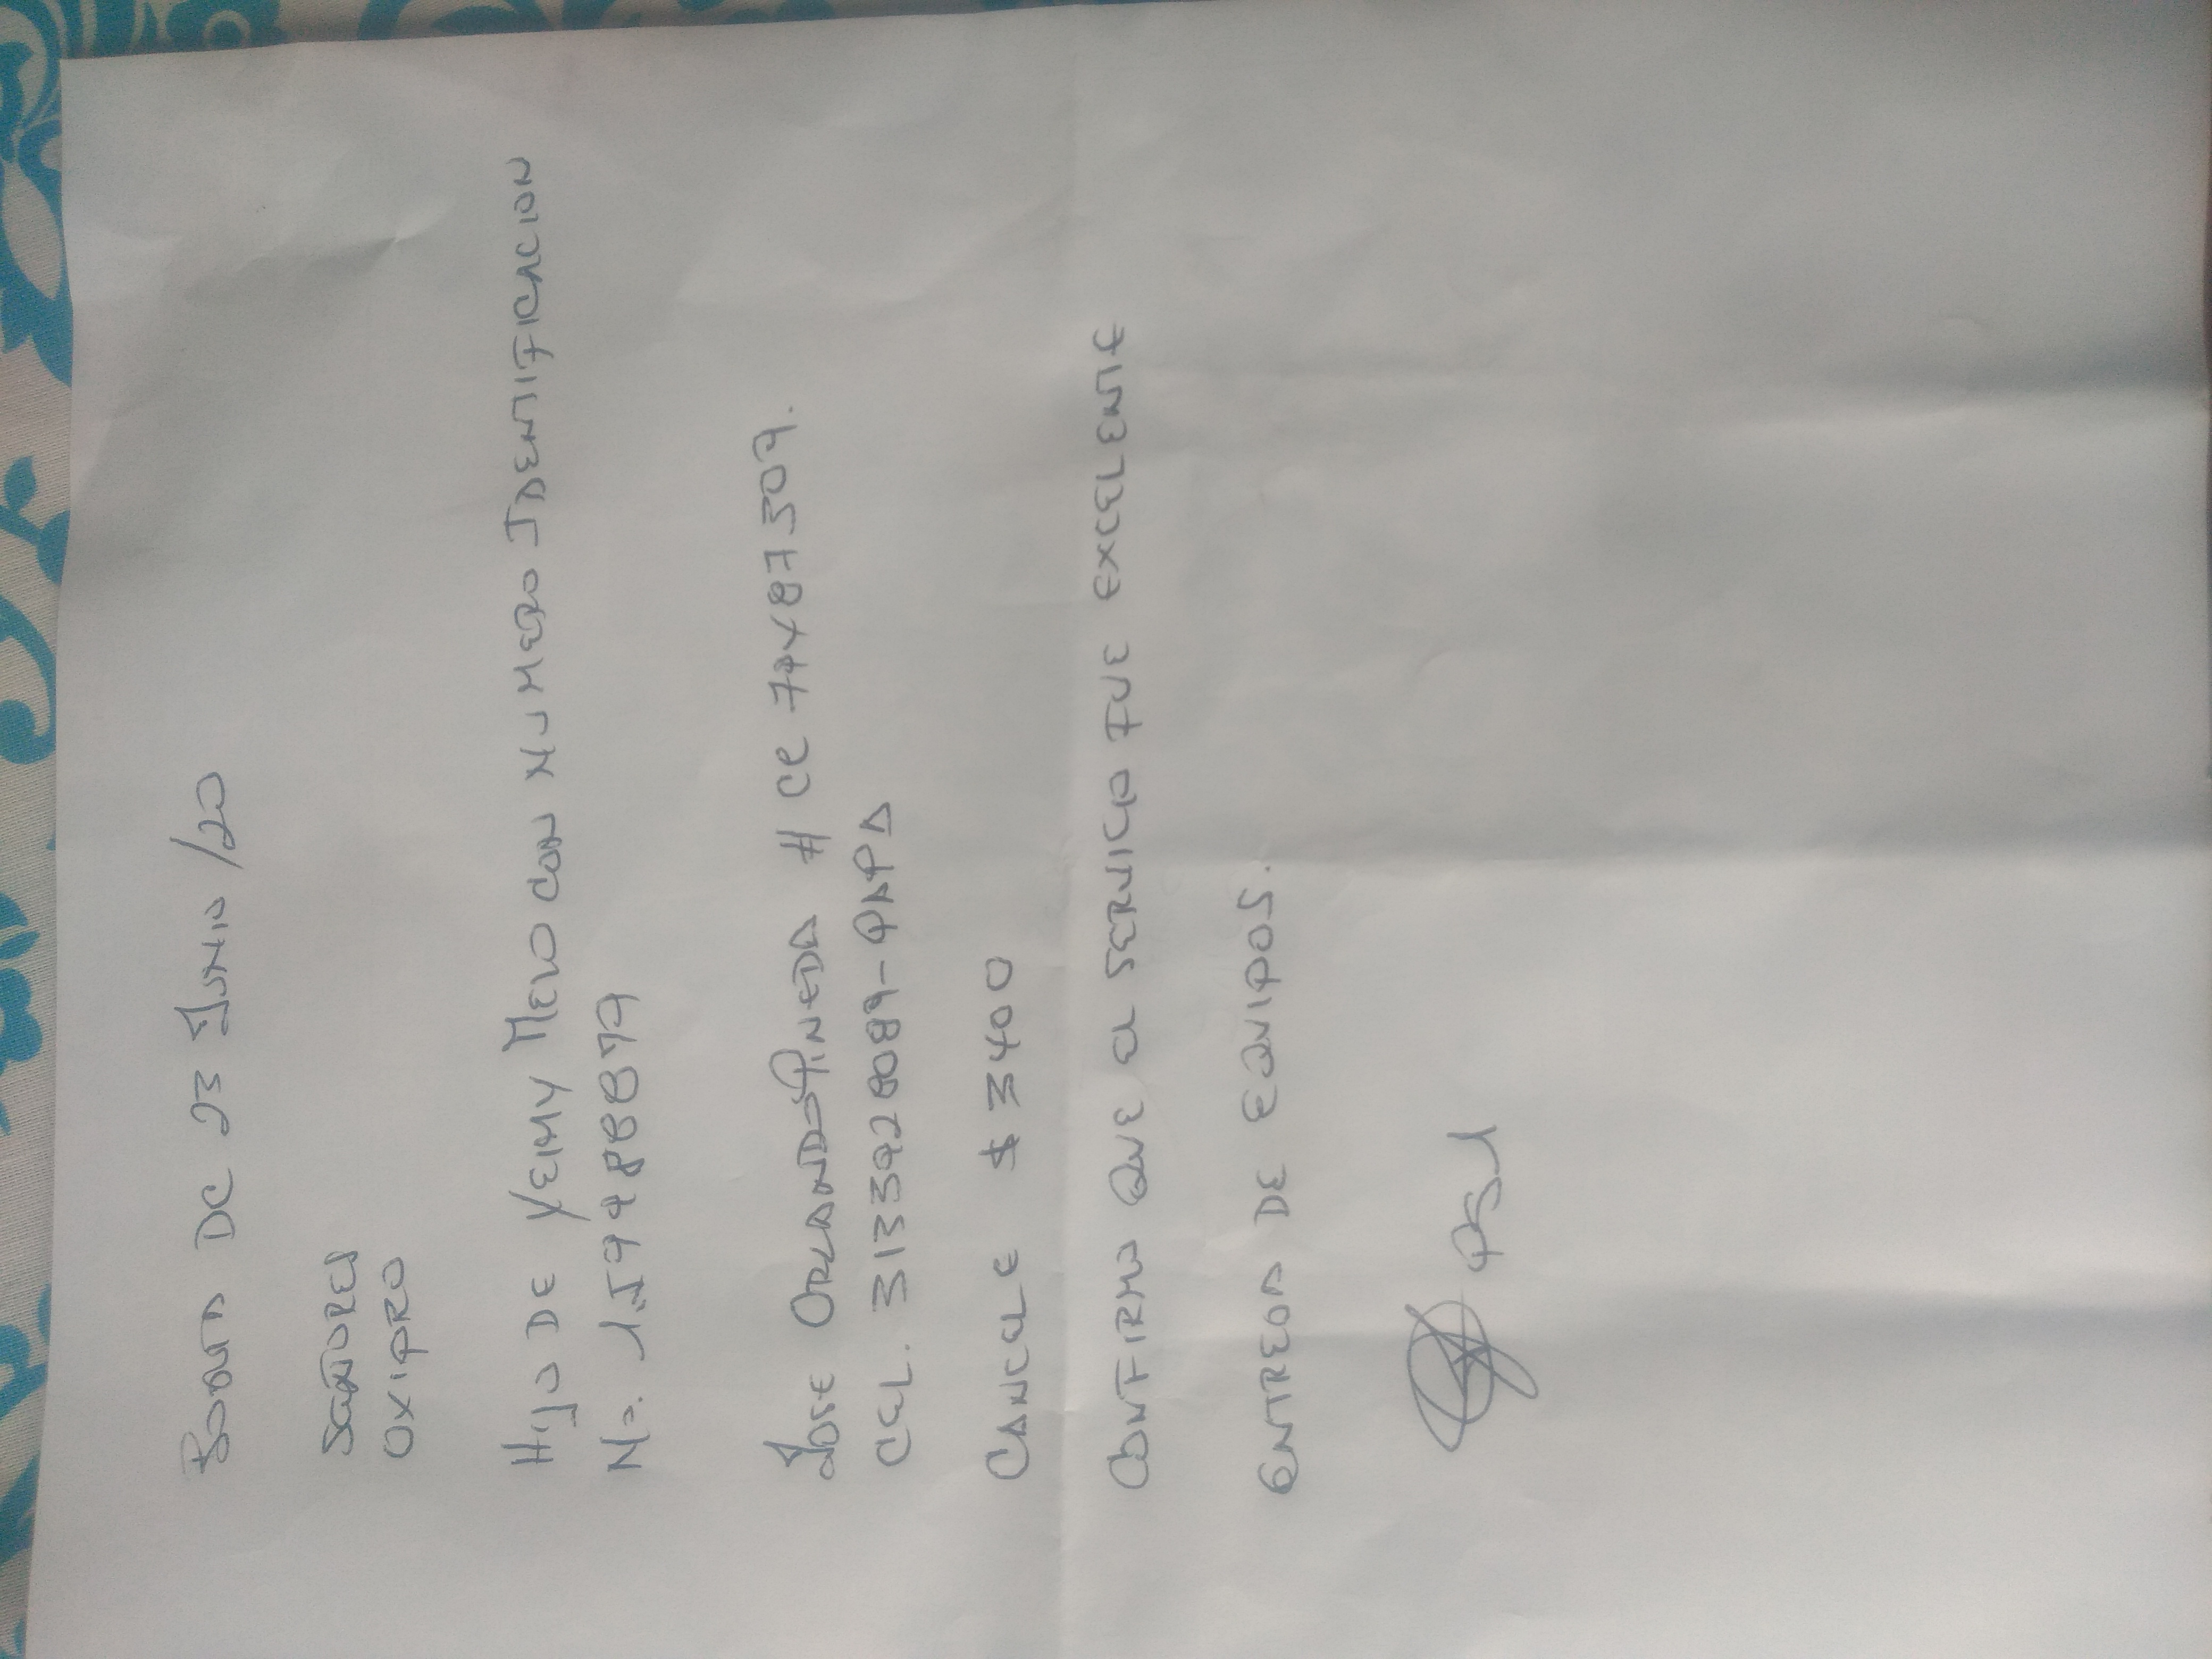 BOGOTA DC 23 JUNIO /20
SEÑORES
OXIPRO
HIJO DE YEIMY MELO CON NUMERO IDENTIFICACION
No.
JOSE ORLANDO PINEDA # CC 74487507.
CEL. 3133928089-PAPA
CANCELE $ 3400
CONFIRMO QUE EL SERVICIO FUE EXCELENTE
ENTREGA DE EQUIPOS.